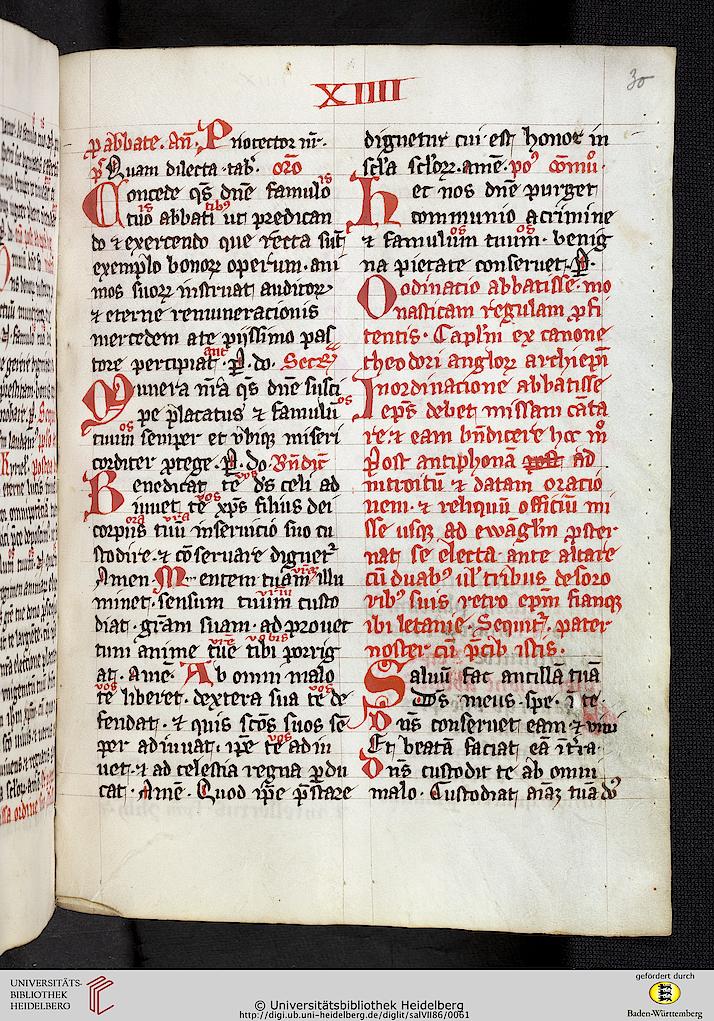 XIIII
30
p abbate. Añ. Protector nr̄.
ps Quam dilecta tab'. oro
Concede qs dn̄e famulo is
tuo is abbati tibus ut predican
do ⁊ exercendo que recta sūt
exemplo bonoꝝ operum. ani
mos suoꝝ instruat auditoꝝ
⁊ eterne remuneracionis
mercedem a te pijssimo pas
tore percipiat ant. P. do. Secr̄
Munera nr̄a qs dn̄e susci
pe placatus ⁊ famulū os
tuum os semper et vbiqꝫ miseri
corditer ꝓtege. P. do. Bn̄dic̄
Benedicat te vos ds celi ad
iuuet te vos xp̄s filius dei
corpus ora tuū vr̄a in seruicio suo cu
stodire. ⁊ cōseruare dignet᷑
Amen. Mentem tuam vr̄am illu
minet. sensum tuum vr̄m custo
diat. grām suam. ad prouec
tum anime tue vr̄e tibi vobis porrig
at. Amē. Ab omni malo
te vos liberet. dextera sua te vos de
fendat. ⁊ quis sc̄os suos sē
per adiuuat. ip̄e te vos adiu
uet. ⁊ ad celestia regna ꝑdu
cat. Amē. Quod ip̄e p̄stare
dignetur cui est honor in
sc̄la sc̄loꝝ. amē. po᷒ cōmu᷒.
Hec nos dn̄e purget
communio a crimine
⁊ famulum os tuum os. benig
na pietate conseruet. P.
Oodinatio abbatisse. mo
nasticam regulam ꝓfi
tentis. Caplm̄ ex canone
theodori angloꝝ archiep̄i
In ordinacione abbatisse
ep̄s debet missam cāta
re. ⁊ eam bn̄dicere hoc mō
Post antiphonā ad
introitū ⁊ datam oracio
nem. ⁊ reliquū officiū mi
sse usqꝫ ad ewāglm̄ ꝓster
nat se electa ante altare
cū duabꝰ ul' tribus de soro
ribꝰ suis. retro ep̄m fianqꝫ
ibi letanie. Sequit᷑. pater
noster cū p̄cib istis.
Saluū fac ancillā tuā
Ds meus. spe. i te.
Dn̄s conseruet eam ⁊ viui
Et beatā faciat eā i t̄ra.
Dn̄s custodit te ab omni
malo. Custodiat aīaꝫ tuā do᷒
UNIVERSITÄTS-
BIBLIOTHEK
HEIDELBERG
© Universitätsbibliothek Heidelberg
http://digi.ub.uni-heidelberg.de/diglit/salVII86/0061
gefördert durch
Baden-Württemberg